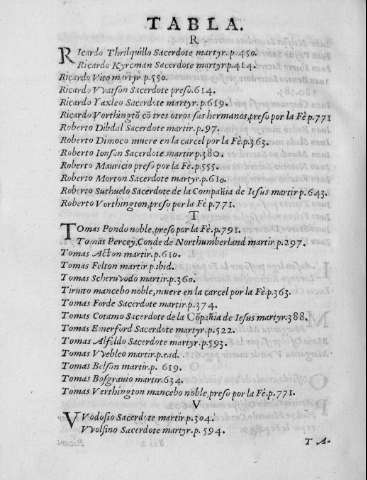 TABLA.
R
Ricardo Thrilquillo Sacerdote martyr. p. 450.
Ricardo Kyrcman Sacerdote martyr. p. 414.
Ricardo Vito martyr. p. 550.
Ricardo VVatson Sacerdote preso. 614.
Ricardo Yaxleo Sacerdote martyr. p. 619.
Ricardo Vvorthingtō cō tres otros sus hermanos, preso por la Fè. p. 771
Roberto Dibdal Sacerdote martir. p. 97.
Roberto Dimoco muere en la carcel por la Fè. p. 363.
Roberto Ionson Sacerdote martir. p. 380.
Roberto Mauricio preso por la Fè. p. 555.
Roberto Morton Sacerdote martyr. p. 610.
Roberto Suthuelo Sacerdote de la Compañia de Iesus martir p. 643.
Roberto Vorthington, preso por la Fè. p. 771.
T
Tomas Pondo noble, preso por la Fè. p. 791.
Tomas Percey, Conde de Northumberland martir. p. 297.
Tomas Acton martyr. p. 610.
Tomas Felton martyr. p. ibid.
Tomas Schervvodo martir. p. 360.
Tirino mancebo noble, muere en la carcel por la Fè. p. 363.
Tomas Forde Sacerdote martir. p. 374.
Tomas Cotamo Sacerdote de la Cōpañia de Iesus martyr. 388.
Tomas Emerford Sacerdote martyr. p. 522.
Tomas Alfeldo Sacerdote martyr. p. 593.
Tomas VVebleo martir. p. ead.
Tomas Belson martir. p. 619.
Tomas Bosgrauio martyr. 634.
Tomas Verthington mancebo noble, preso por la Fè. p. 771.
V
VVodosio Sacerdote martir. p. 304.
VVolsino Sacerdote martyr. p. 594.
T A-